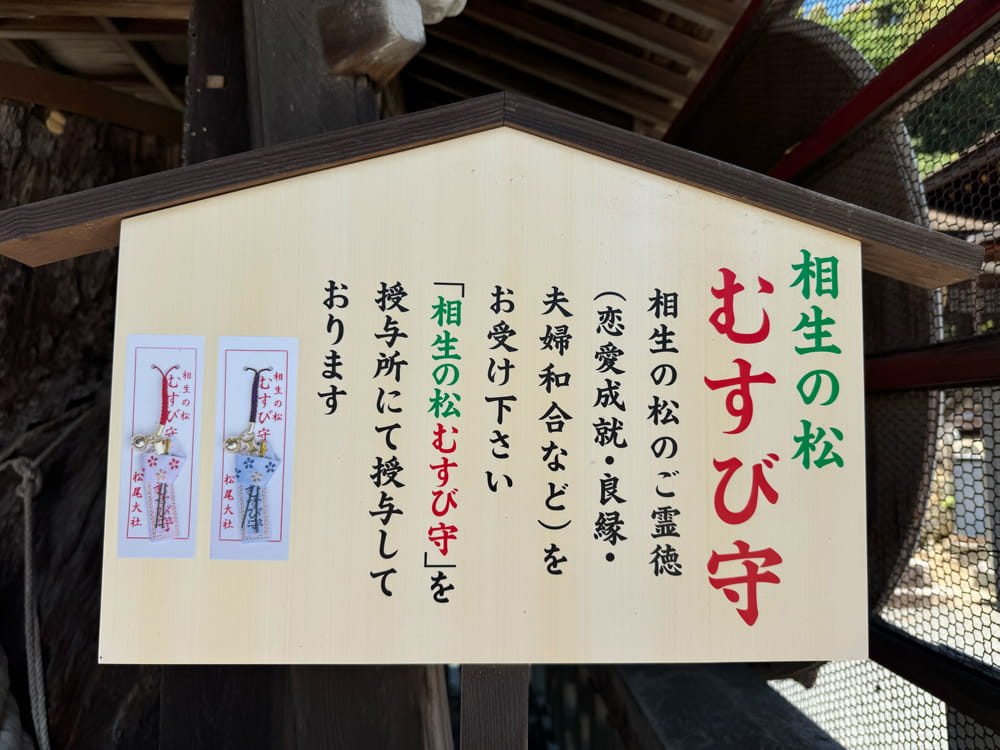 相生の松
むすび守
相生の松のご霊徳
(恋愛成就・良縁・
夫婦和合など)を
お受け下さい
「相生の松むすび守」を
授与所にて授与して
おります
相生の松
むすび守
松尾大社
むすび守
相生の松
むすび守
松尾大社
むすび守